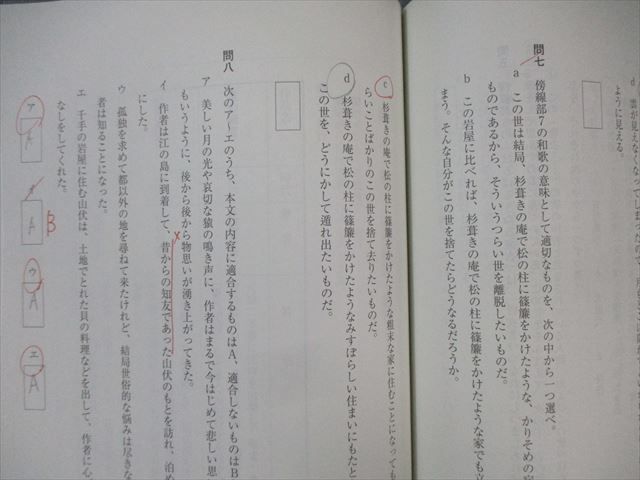 d 雲が見えな
ように見える。
問七 傍線部7の和歌の意味として適切なものを、次の中から一つ選べ。
a この世は結局、杉葺きの庵で松の柱に篠簾をかけたような、かりそめの
ものであるから、そういうつらい世を離脱したいものだ。
b この岩屋に比べれば、杉葺きの庵で松の柱に篠簾をかけたような家でも立
まう。そんな自分がこの世を捨てたらどうなるだろうか。
c 杉葺きの庵で松の柱に篠簾をかけたような粗末な家に住むことになっても
らいことばかりのこの世を捨て去りたいものだ。
d 杉葺きの庵で松の柱に篠簾をかけたようなみすぼらしい住まいにもたと
この世を、どうにかして遁れ出たいものだ。
問八 次のア〜エのうち、本文の内容に適合するものはA、適合しないものはB
ア 美しい月の光や哀切な猿の鳴き声に、作者はまるで今はじめて悲しい思
もいうように、後から後から物思いが湧き上がってきた。
イ 作者は江の島に到着して、昔からの知友であった山伏のもとを訪れ、泊め
にした。
ウ 孤独を求めて都以外の地を尋ねて来たけれど、結局世俗的な悩みは尽きな
者は知ることになった。
エ 千手の岩屋に住む山伏は、土地でとれた貝の料理などを出して、作者に心
なしをしてくれた。
ア A
イ A B
ウ A
エ A